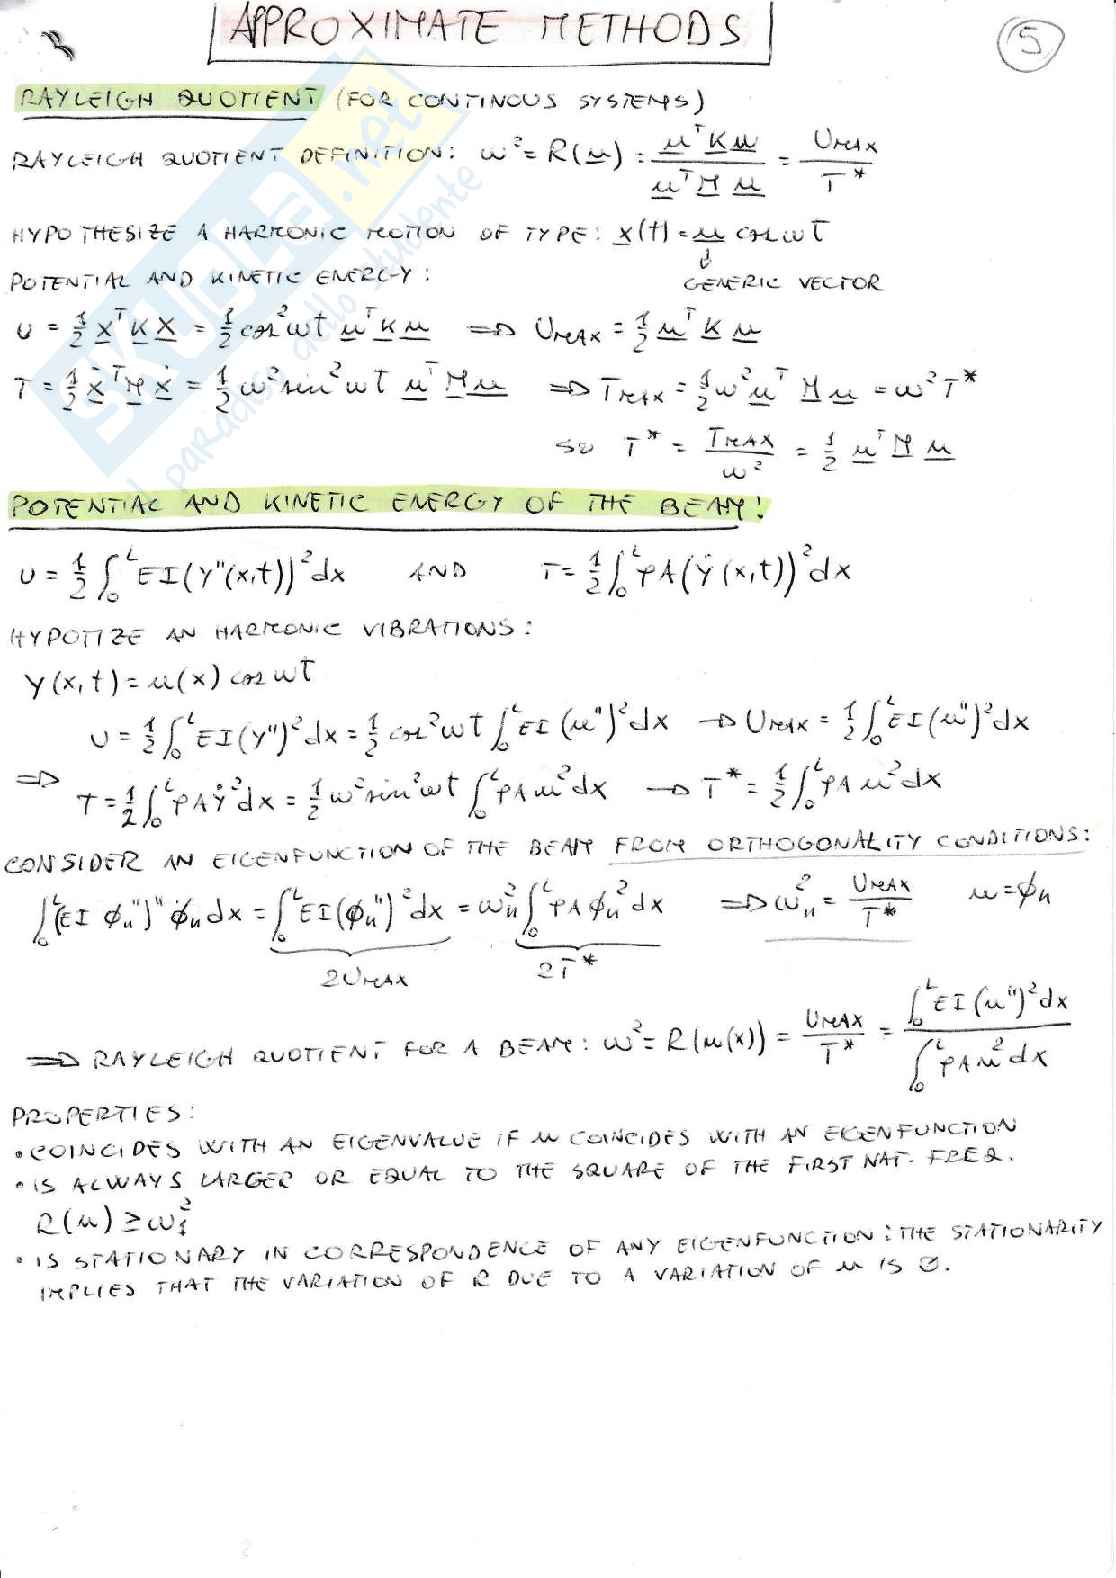 APPROXIMATE METHODS
5
RAYLEIGH QUOTIENT (FOR CONTINOUS SYSTEMS)
RAYLEIGH QUOTIENT DEFINITION: ω² = R(u) = uᵀKu / uᵀMu = U_MAX / T*
HYPOTHESIZE A HARMONIC MOTION OF TYPE: x(t) = u cos ωt
↓
POTENTIAL AND KINETIC ENERGY: GENERIC VECTOR
U = 1/2 xᵀKx = 1/2 cos²ωt uᵀKu ⇒ U_MAX = 1/2 uᵀKu
T = 1/2 ẋᵀMẋ = 1/2 ω² sin²ωt uᵀMu ⇒ T_MAX = 1/2 ω² uᵀMu = ω²T*
SO T* = T_MAX / ω² = 1/2 uᵀMu
POTENTIAL AND KINETIC ENERGY OF THE BEAM!
U = 1/2 ∫₀ᴸ EI(y''(x,t))² dx AND T = 1/2 ∫₀ᴸ ρA(ẏ(x,t))² dx
HYPOTIZE AN HARMONIC VIBRATIONS:
y(x,t) = u(x) cos ωt
U = 1/2 ∫₀ᴸ EI(y'')² dx = 1/2 cos²ωt ∫₀ᴸ EI(u'')² dx → U_MAX = 1/2 ∫₀ᴸ EI(u'')² dx
⇒
T = 1/2 ∫₀ᴸ ρAẏ² dx = 1/2 ω² sin²ωt ∫₀ᴸ ρAu² dx → T* = 1/2 ∫₀ᴸ ρAu² dx
CONSIDER AN EIGENFUNCTION OF THE BEAM FROM ORTHOGONALITY CONDITIONS:
∫₀ᴸ (EI φₙ'')'' φₙ dx = ∫₀ᴸ EI(φₙ'')² dx = ωₙ² ∫₀ᴸ ρAφₙ² dx ⇒ ωₙ² = U_MAX / T* u = φₙ
2U_MAX 2T*
⇒ RAYLEIGH QUOTIENT FOR A BEAM: ω² = R(u(x)) = U_MAX / T* = ∫₀ᴸ EI(u'')² dx / ∫₀ᴸ ρAu² dx
PROPERTIES:
• COINCIDES WITH AN EIGENVALUE IF u COINCIDES WITH AN EIGENFUNCTION
• IS ALWAYS LARGER OR EQUAL TO THE SQUARE OF THE FIRST NAT. FREQ.
R(u) ≥ ω₁²
• IS STATIONARY IN CORRESPONDENCE OF ANY EIGENFUNCTION: THE STATIONARITY
IMPLIES THAT THE VARIATION OF R DUE TO A VARIATION OF u IS ∅.
SKUOLA.net
il paradiso dello studente